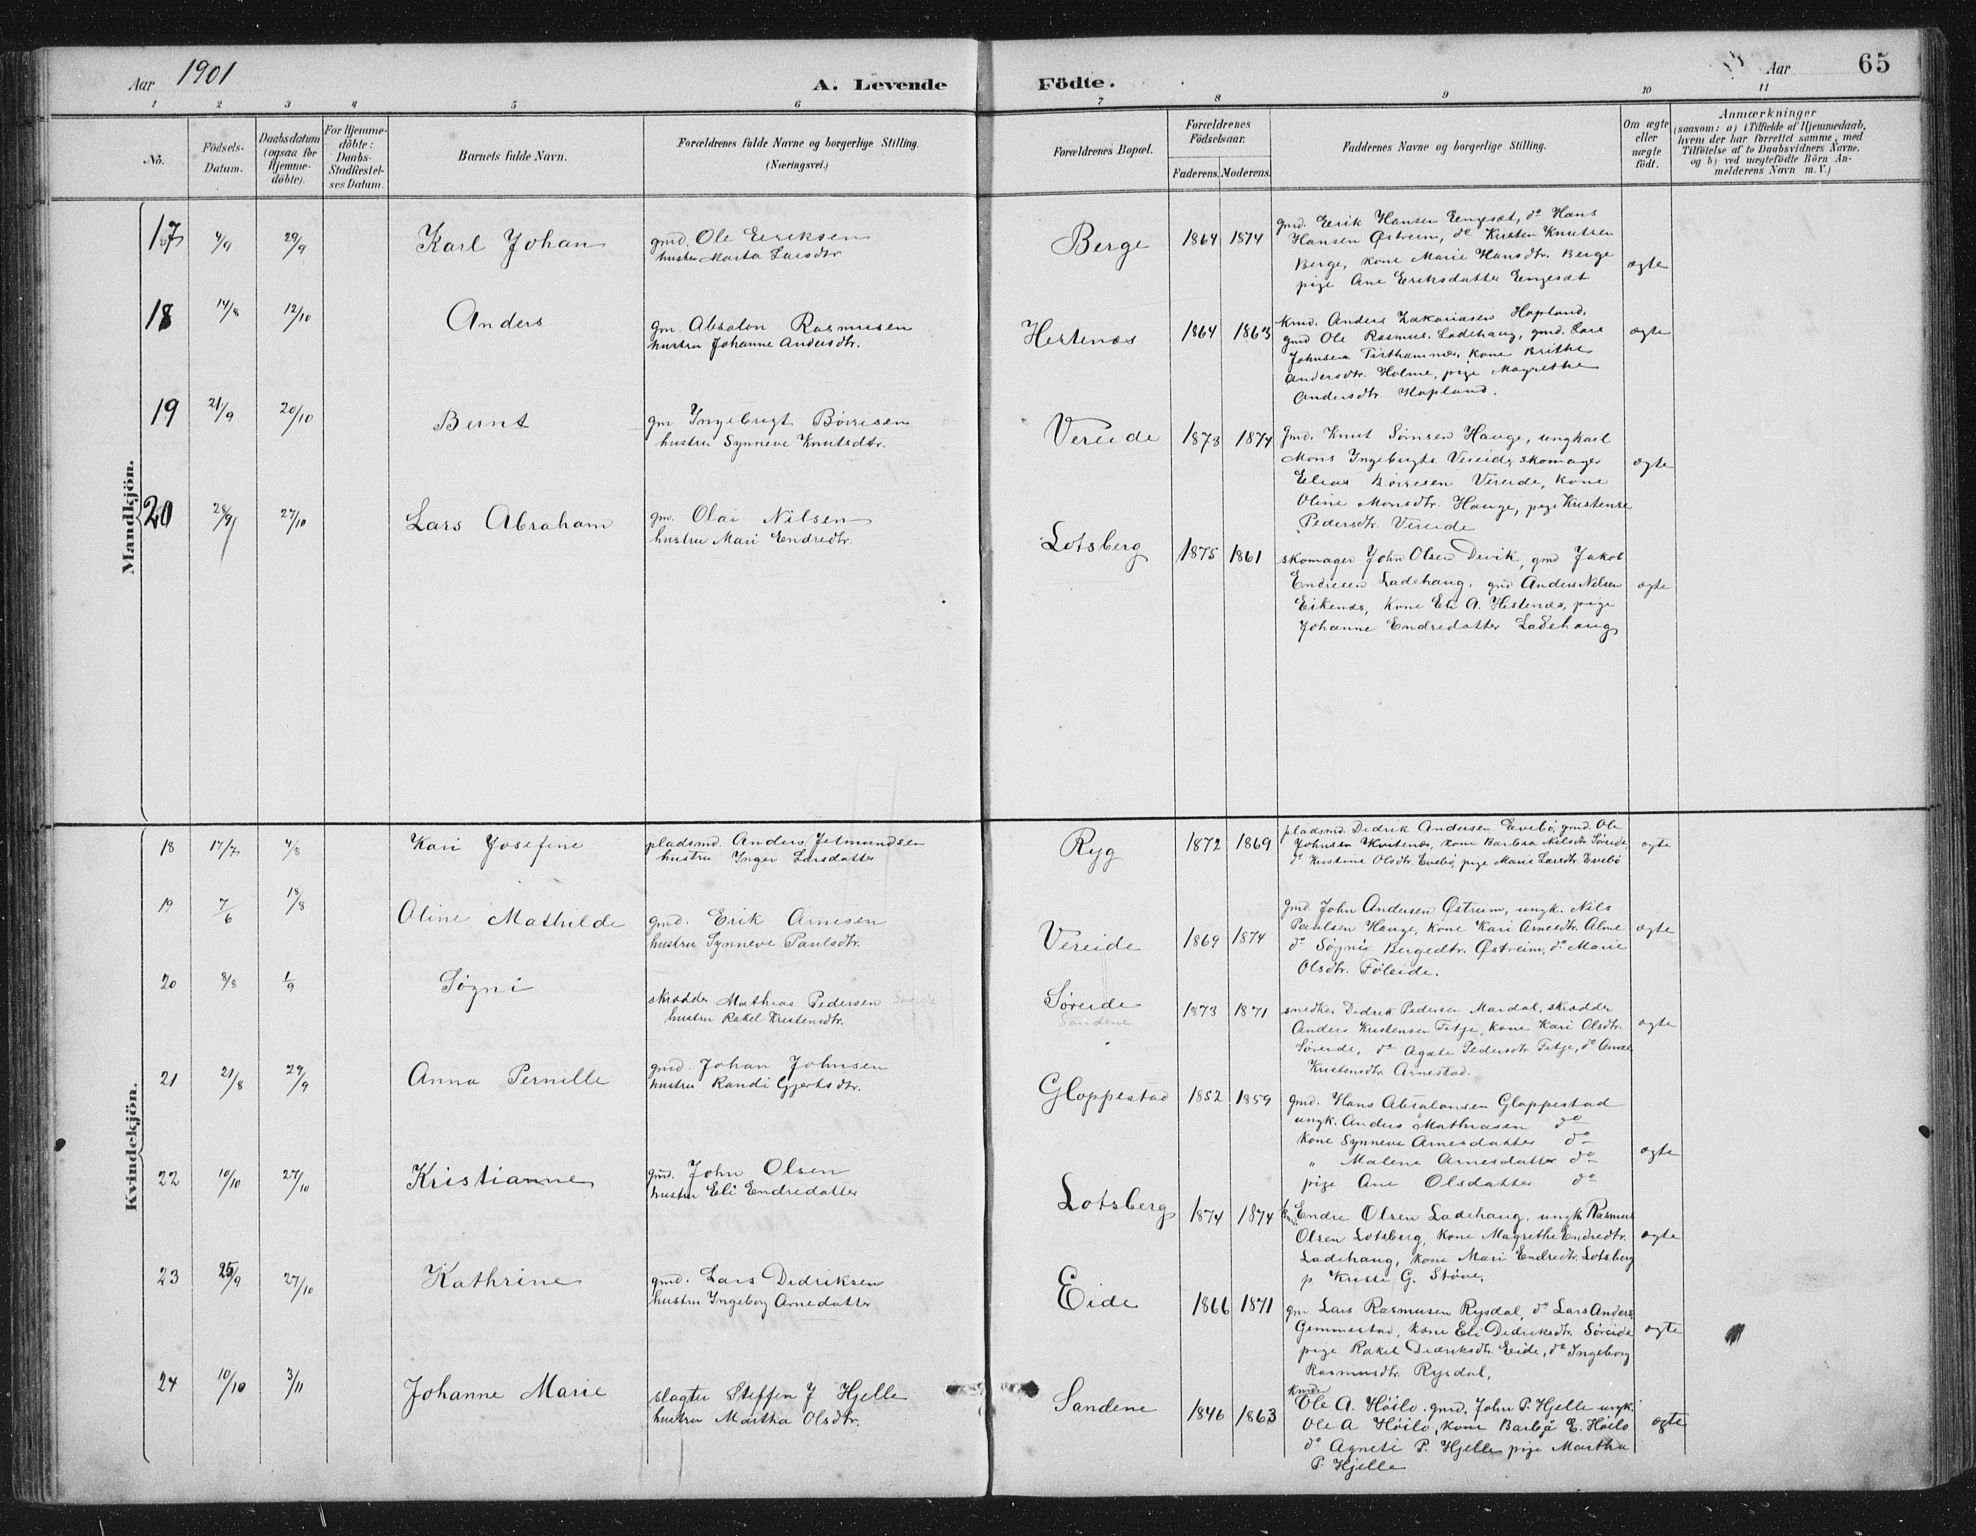 Aar 1901
A. Levende Födte.
Aar 65
1 2 3 4 5 6 7 8 9 10 11
No.
Födsels-Datum.
Daabsdatum (ogsaa for Hjemme-döbte).
For Hjemme-döbte: Daabs-Stadfæstel-ses Datum.
Barnets fulde Navn.
Forældrenes fulde Navne og borgerlige Stilling.
(Næringsvei.)
Forældrenes Bopæl.
Forældrenes Födselsaar.
Faderens. Moderens.
Faddernes Navne og borgerlige Stilling.
Om ægte eller uægte födt.
Anmærkninger
(saasom: a) i Tilfælde af Hjemmedaab,
hvem der har forrettet samme, med
Tilföielse af to Daabsvidners Navne,
og b) ved uægtefödte Börn An-
melderens Navn m. V.)
Mandkjön.
17 4/9 29/9 Karl Johan
gmd. Ole Eriksen
hustru Marta Larsdtr
Berge 1864 1874
gmd. Eerik Hansen Eengesæt, do Hans
Hansen Østreim, do Kristen Knutsen
Berge, kone Marie Hansdtr. Berge
pige Ane Eriksdatter Engesæt
ægte
18 14/8 12/10 Anders
gm. Absalon Rasmusen
hustru Johanne Andersdtr.
Hestenæs 1864 1863
kmd. Anders Zakariasen Hopland,
gmd Ole Rasmus. Ladehaug, gmd. Lars
Johnsen kone Brithe
Andersdtr. Holme, pige Magrethe
Andersdtr. Hopland.
ægte
19 21/9 20/10 Bernt
gm Ingebrigt Børresen
hustru Synneve Knutsdtr.
Vereide 1873 1874
gmd. Knut Hauge, ungkarl
Mons Ingebrigts. Vereide, skomager
Elias Børresen Vereide, kone
Oline Monsdtr. Hauge, pige Kristense
Pedersdtr. Vereide
ægte
20 28/9 27/10 Lars Abraham
gm. Olai Nilsen
hustru Mari Endredtr.
Lotsberg 1875 1861
skomager John Olsen Devik, gmd Jakob
Endresen Ladehaug, gmd Anders Nilsen
Eikenæs, kone Eli A. Hestenæs, pige
Johanne Endredatter Ladehaug
ægte
Kvindekjön.
18 17/7 4/8 Kari Josefine
pladsmd. Anders Jetmundsen
hustru Inger Larsdatter
Ryg 1872 1869
pladsmd. Didrik Andersen Evebø, gmd. Ole
Johnsen Kvitenæs, kone Barbra Nilsdtr Søreide
do Kristine Olsdtr. Evebø, pige Marie Larsdtr. Evebø
ægte
19 7/6 18/8 Oline Mathilde
gmd. Erik Arnesen
hustru Synneve Paulsdtr.
Vereide 1869 1874
gmd. John Andersen Østreim, ungk. Nils
Paulsen Hauge, kone Kari Arnesdtr. Alme
do Søgnir Bergedtr. Østreim, do Marie
Olsdtr. Føleide.
ægte
20 8/8 1/9 Søgni
skrædder Mathias Pedersen Søreide
hustru Rakel Kristensdtr.
Søreide
Sandene
1873 1871
snedker Didrik Pedersen Mardal, skrædder
Anders Kristensen Fitje, kone Kari Olsdtr.
Søreide, do Agate Pedersdtr Fitje, do Anna
Kristensdtr. Arnestad.
ægte
21 21/8 29/9 Anna Pernille
gmd. Johan Johnsen
hustru Randi Gjertsdtr.
Gloppestad 1852 1859
gmd. Hans Absalonsen Gloppestad
ungk. Anders Mathiasen do
kone Synneve Arnesdatter do
" Malene Arnesdatter do
pige Ane Olsdatter do
ægte
22 10/10 27/10 Kristianne
gmd. John Olsen
hustru Eli Endredatter
Lotsberg 1874 1874
Endre Olsen Ladehaug, ungk. Rasmus
Olsen Lotsberg, kone Magrethe Endredtr.
Ladehaug, kone Mari Endredtr. Lotsberg
p. Kristi G. Støve.
ægte
23 25/9 27/10 Kathrine
gmd. Lars Didriksen
hustru Ingeborg Arnedatter
Eide 1866 1871
gm. Lars Rasmusen Rysdal, do Lars Anders
Gemmestad, kone Eli Didriksdtr. Søreide
pige Rakel Didriksdtr. Eide, do Ingeborg
Rasmusdtr. Rysdal,
ægte
24 10/10 3/11 Johanne Marie
slagter Steffen J Hjelle
hustru Martha Olsdtr.
Sandene 1846 1863
kmd
Ole A. Høilo, gmd. John P. Hjelle ungk.
Ole A Høilo, kone Barbra E. Høilo
do Agnete P. Hjelle, pige Martha
P. Hjelle
ægte